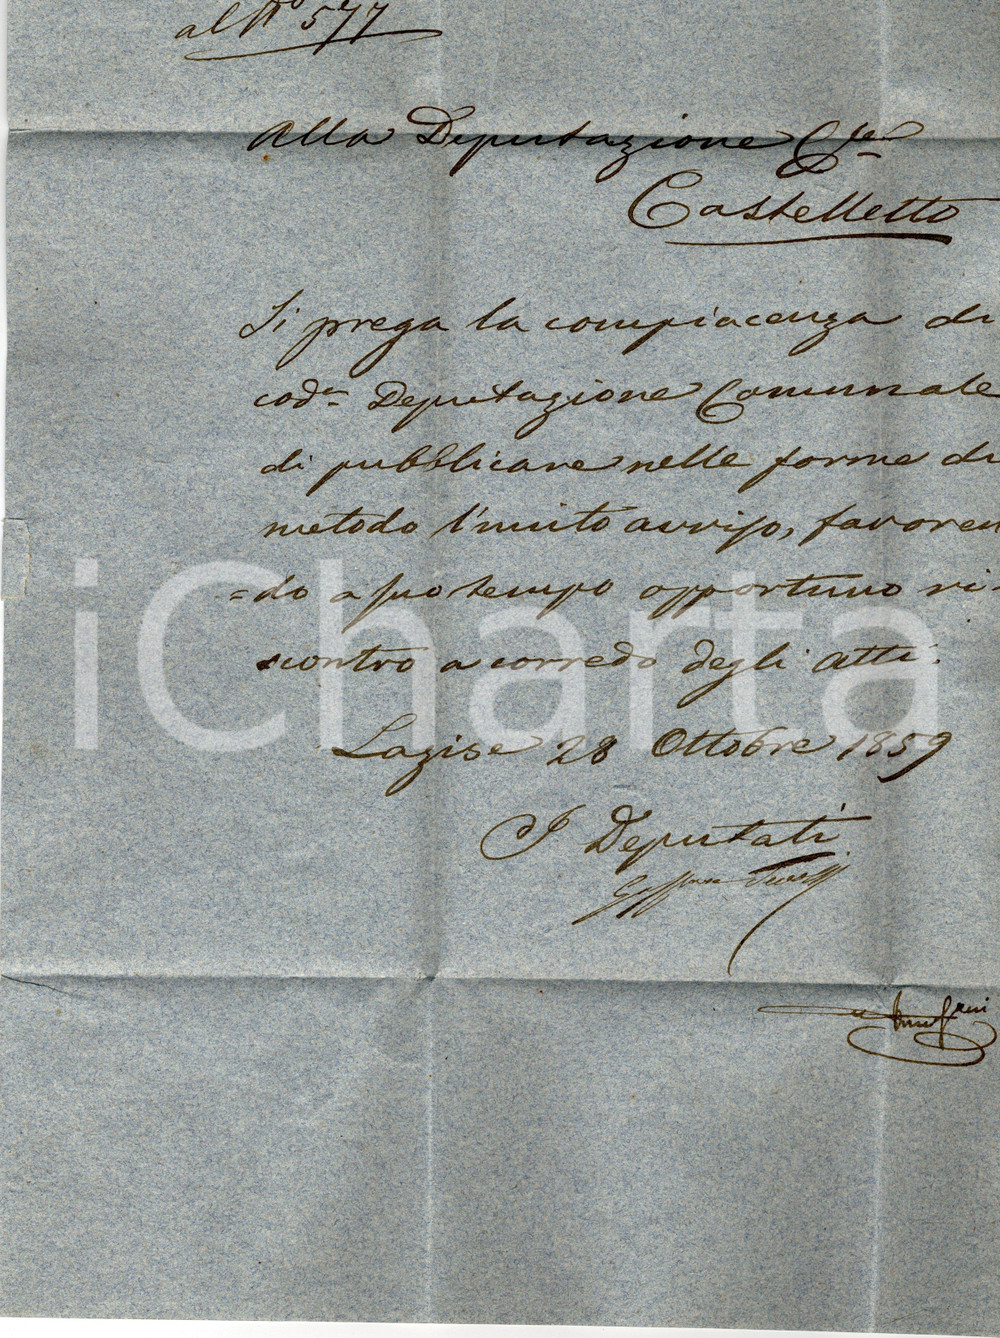 al N° 577
Alla Deputazione Cle
Castelletto
Si prega la compiacenza di
coda Deputazione Comunale
di pubblicare nelle forme di
metodo l'unito avviso, favoren
=do a suo tempo opportuno ri-
scontro a corredo degli atti.
Lazise 28 Ottobre 1859
I Deputati
iCharta